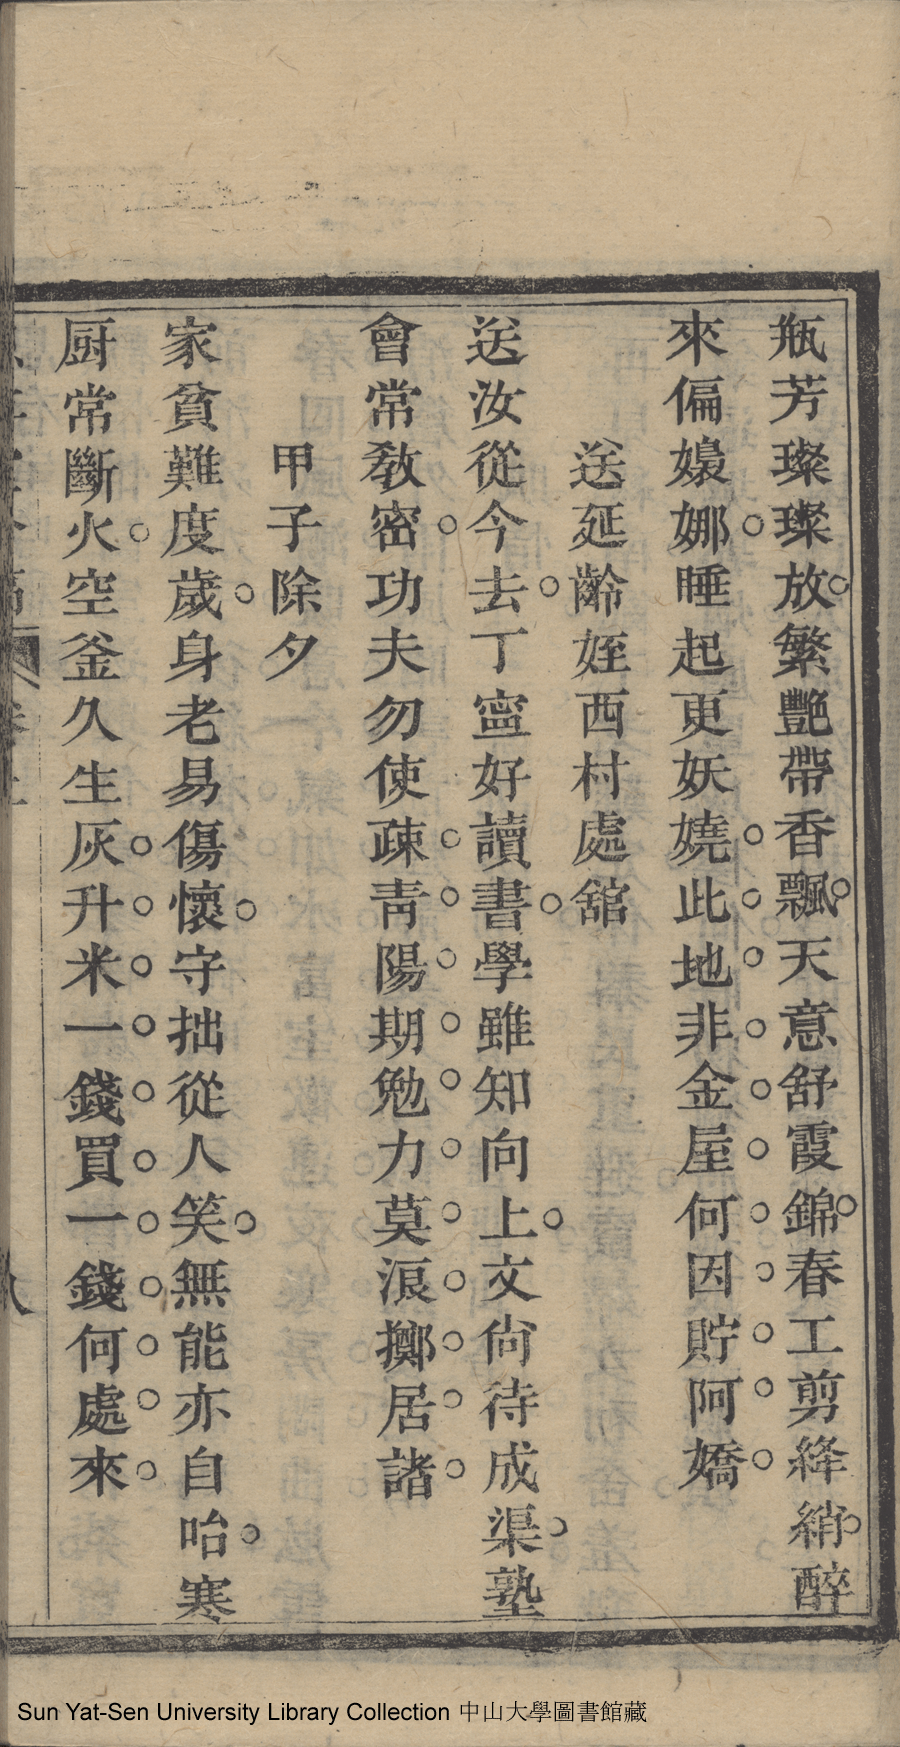 瓶芳璨璨放繁艷帶香飄天意舒霞錦春工剪絳綃醉
來偏嬝娜睡起更妖嬈此地非金屋何因貯阿嬌
送延齡姪西村處舘
送汝從今去丁寍好讀書學雖知向上文尙待成渠塾
會常敎密功夫勿使疎靑陽期勉力莫浪擲居諸
甲子除夕
家貧難度歲身老易傷懷守拙從人笑無能亦自咍寒
厨常斷火空釜久生灰升米一錢買一錢何處來
八
Sun Yat-Sen University Library Collection 中山大學圖書館藏